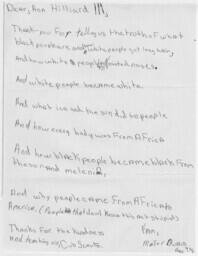 Dear, Ron Hilliard III,
Thank you for telling us the truth of what
black people are and why white people got long hair,
And how white people pointed noses.
And white people became white.
And what ice and the sun did to people
And how every body was From AFrica
And how black people became black From
the sun and melenin,
And why people came From AFrica to
America. (People that dont know this are stupid)
Thanks For the kindness
and teaching us, Cub Scouts.
From,